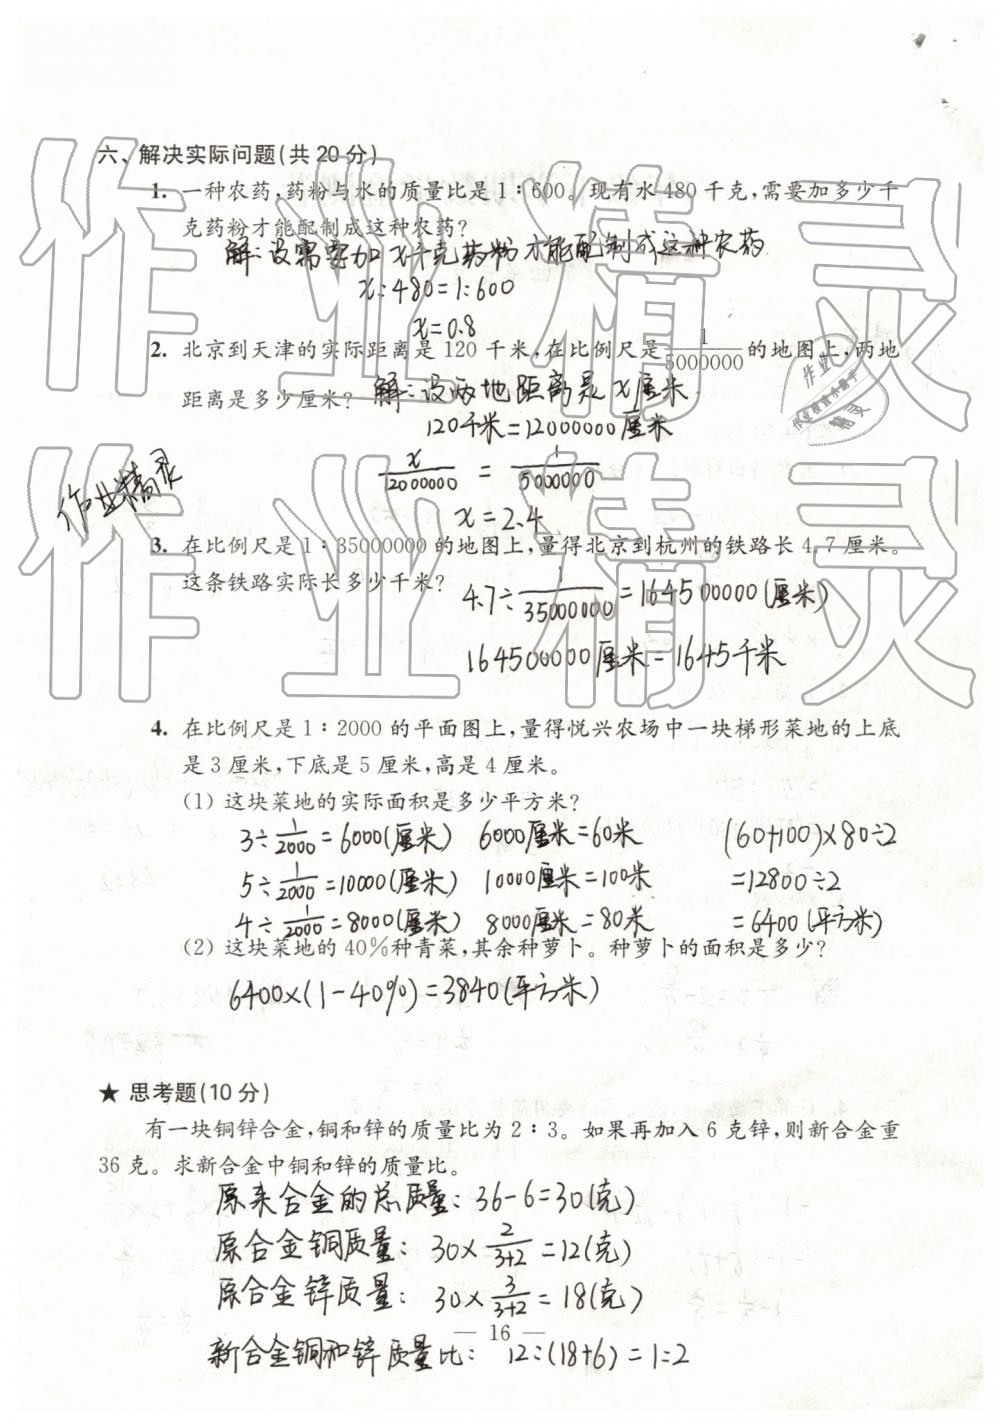 六、解决实际问题(共20分)
1. 一种农药,药粉与水的质量比是1∶600。现有水480千克,需要加多少千
克药粉才能配制成这种农药?
解:设需要加x千克药粉才能配制成这种农药
x:480=1:600
x=0.8
2. 北京到天津的实际距离是120千米,在比例尺是1/5000000的地图上,两地
距离是多少厘米?
解:设两地距离是x厘米
120千米=12000000厘米
x/12000000 = 1/5000000
x=2.4
作业精灵
3. 在比例尺是1∶35000000的地图上,量得北京到杭州的铁路长4.7厘米。
这条铁路实际长多少千米?
4.7÷1/35000000=164500000(厘米)
164500000厘米=1645千米
4. 在比例尺是1∶2000的平面图上,量得悦兴农场中一块梯形菜地的上底
是3厘米,下底是5厘米,高是4厘米。
(1) 这块菜地的实际面积是多少平方米?
3÷1/2000=6000(厘米) 6000厘米=60米 (60+100)×80÷2
5÷1/2000=10000(厘米) 10000厘米=100米 =12800÷2
4÷1/2000=8000(厘米) 8000厘米=80米 =6400(平方米)
(2) 这块菜地的40%种青菜,其余种萝卜。种萝卜的面积是多少?
6400×(1-40%)=3840(平方米)
★ 思考题(10分)
有一块铜锌合金,铜和锌的质量比为2∶3。如果再加入6克锌,则新合金重
36克。求新合金中铜和锌的质量比。
原来合金的总质量:36-6=30(克)
原合金铜质量:30×2/3+2=12(克)
原合金锌质量:30×3/3+2=18(克)
— 16 —
新合金铜和锌质量比:12:(18+6)=1:2
作业精灵
作业精灵